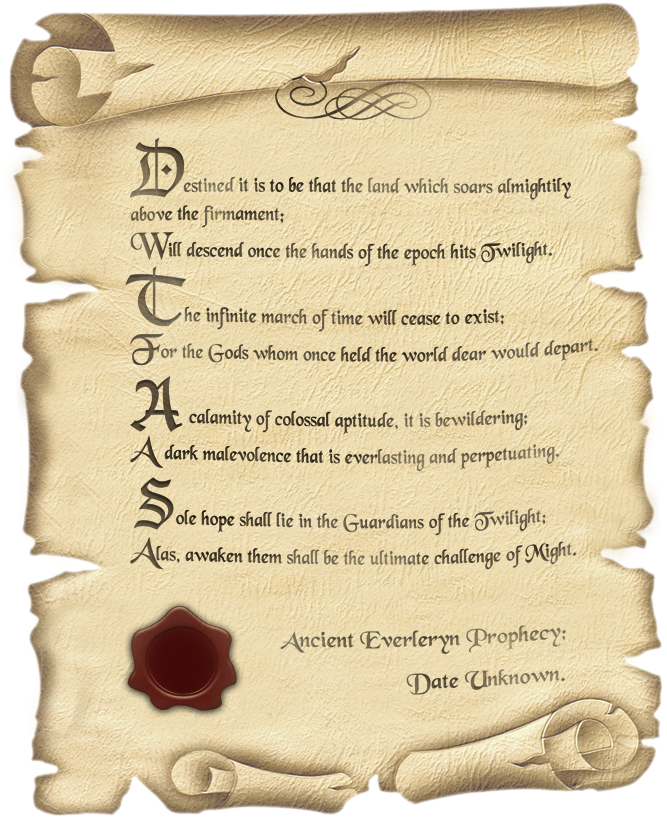 Destined it is to be that the land which soars almightily
above the firmament;
Will descend once the hands of the epoch hits Twilight.
The infinite march of time will cease to exist;
For the Gods whom once held the world dear would depart.
A calamity of colossal aptitude, it is bewildering;
A dark malevolence that is everlasting and perpetuating.
Sole hope shall lie in the Guardians of the Twilight;
Alas, awaken them shall be the ultimate challenge of Might.
Ancient Everleryn Prophecy;
Date Unknown.